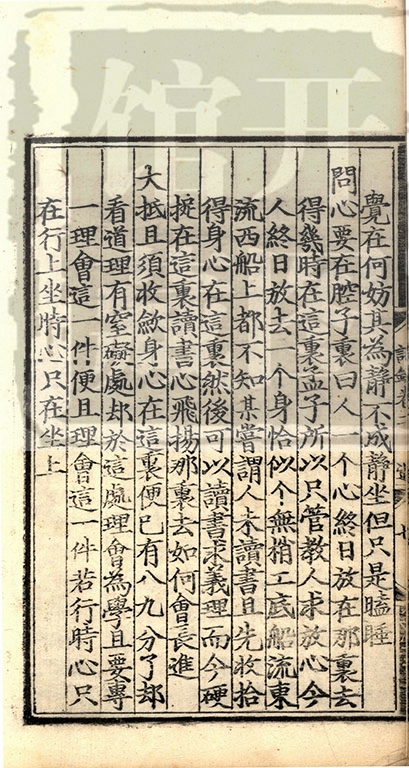 覺在何妨其為靜不成靜坐但只是瞌睡
問心要在腔子裏曰人一个心終日放在那裏去
得幾時在這裏孟子所以只管教人求放心今
人終日放去一个身恰似个無梢工底船流東
流西船上都不知某嘗謂人未讀書且先收拾
得身心在這裏然後可以讀書求義理而今硬
捉在這裏讀書心飛揚那裏去如何會長進
大抵且須收斂身心在這裏便已有八九分了却
看道理有窒礙處却於這處理會為學且要專
一理會這一件便且理會這一件若行時心只
在行上坐時心只在坐上
開
館